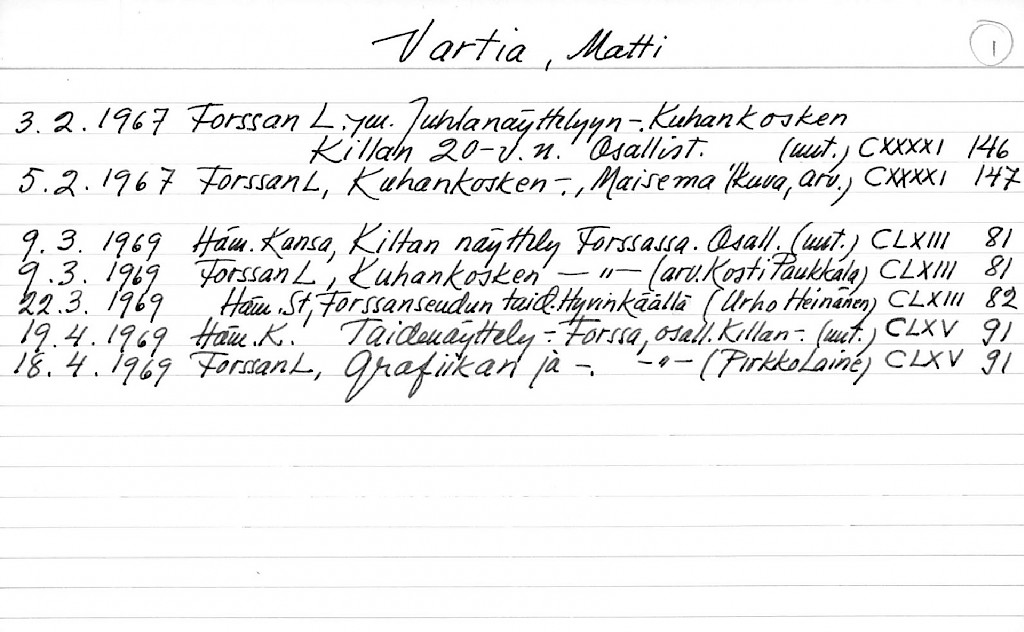 Vartia, Matti 1
3.2.1967 Forssan L. ym. Juhlanäyttelyyn -. Kuhankosken
Killan 20-v.n. Osallist. (uut.) CXXXXI 146
5.2.1967 Forssan L, Kuhankosken -:, Maisema (kuva, arv.) CXXXXI 147
9.3. 1969 Häm. Kansa, Killan näyttely Forssassa. Osall. (uut.) CLXIII 81
9.3. 1969 Forssan L, Kuhankosken —"— (arv. Kosti Paukkala) CLXIII 81
22.3. 1969 Häm. St, Forssanseudun taid. Hyvinkäällä (Urho Heinänen) CLXIII 82
19.4.1969 Häm. K. Taidenäyttely -: Forssa, osall. Killan -: (uut.) CLXV 91
18.4.1969 Forssan L, Grafiikan ja -. -"- (Pirkko Laine) CLXV 91